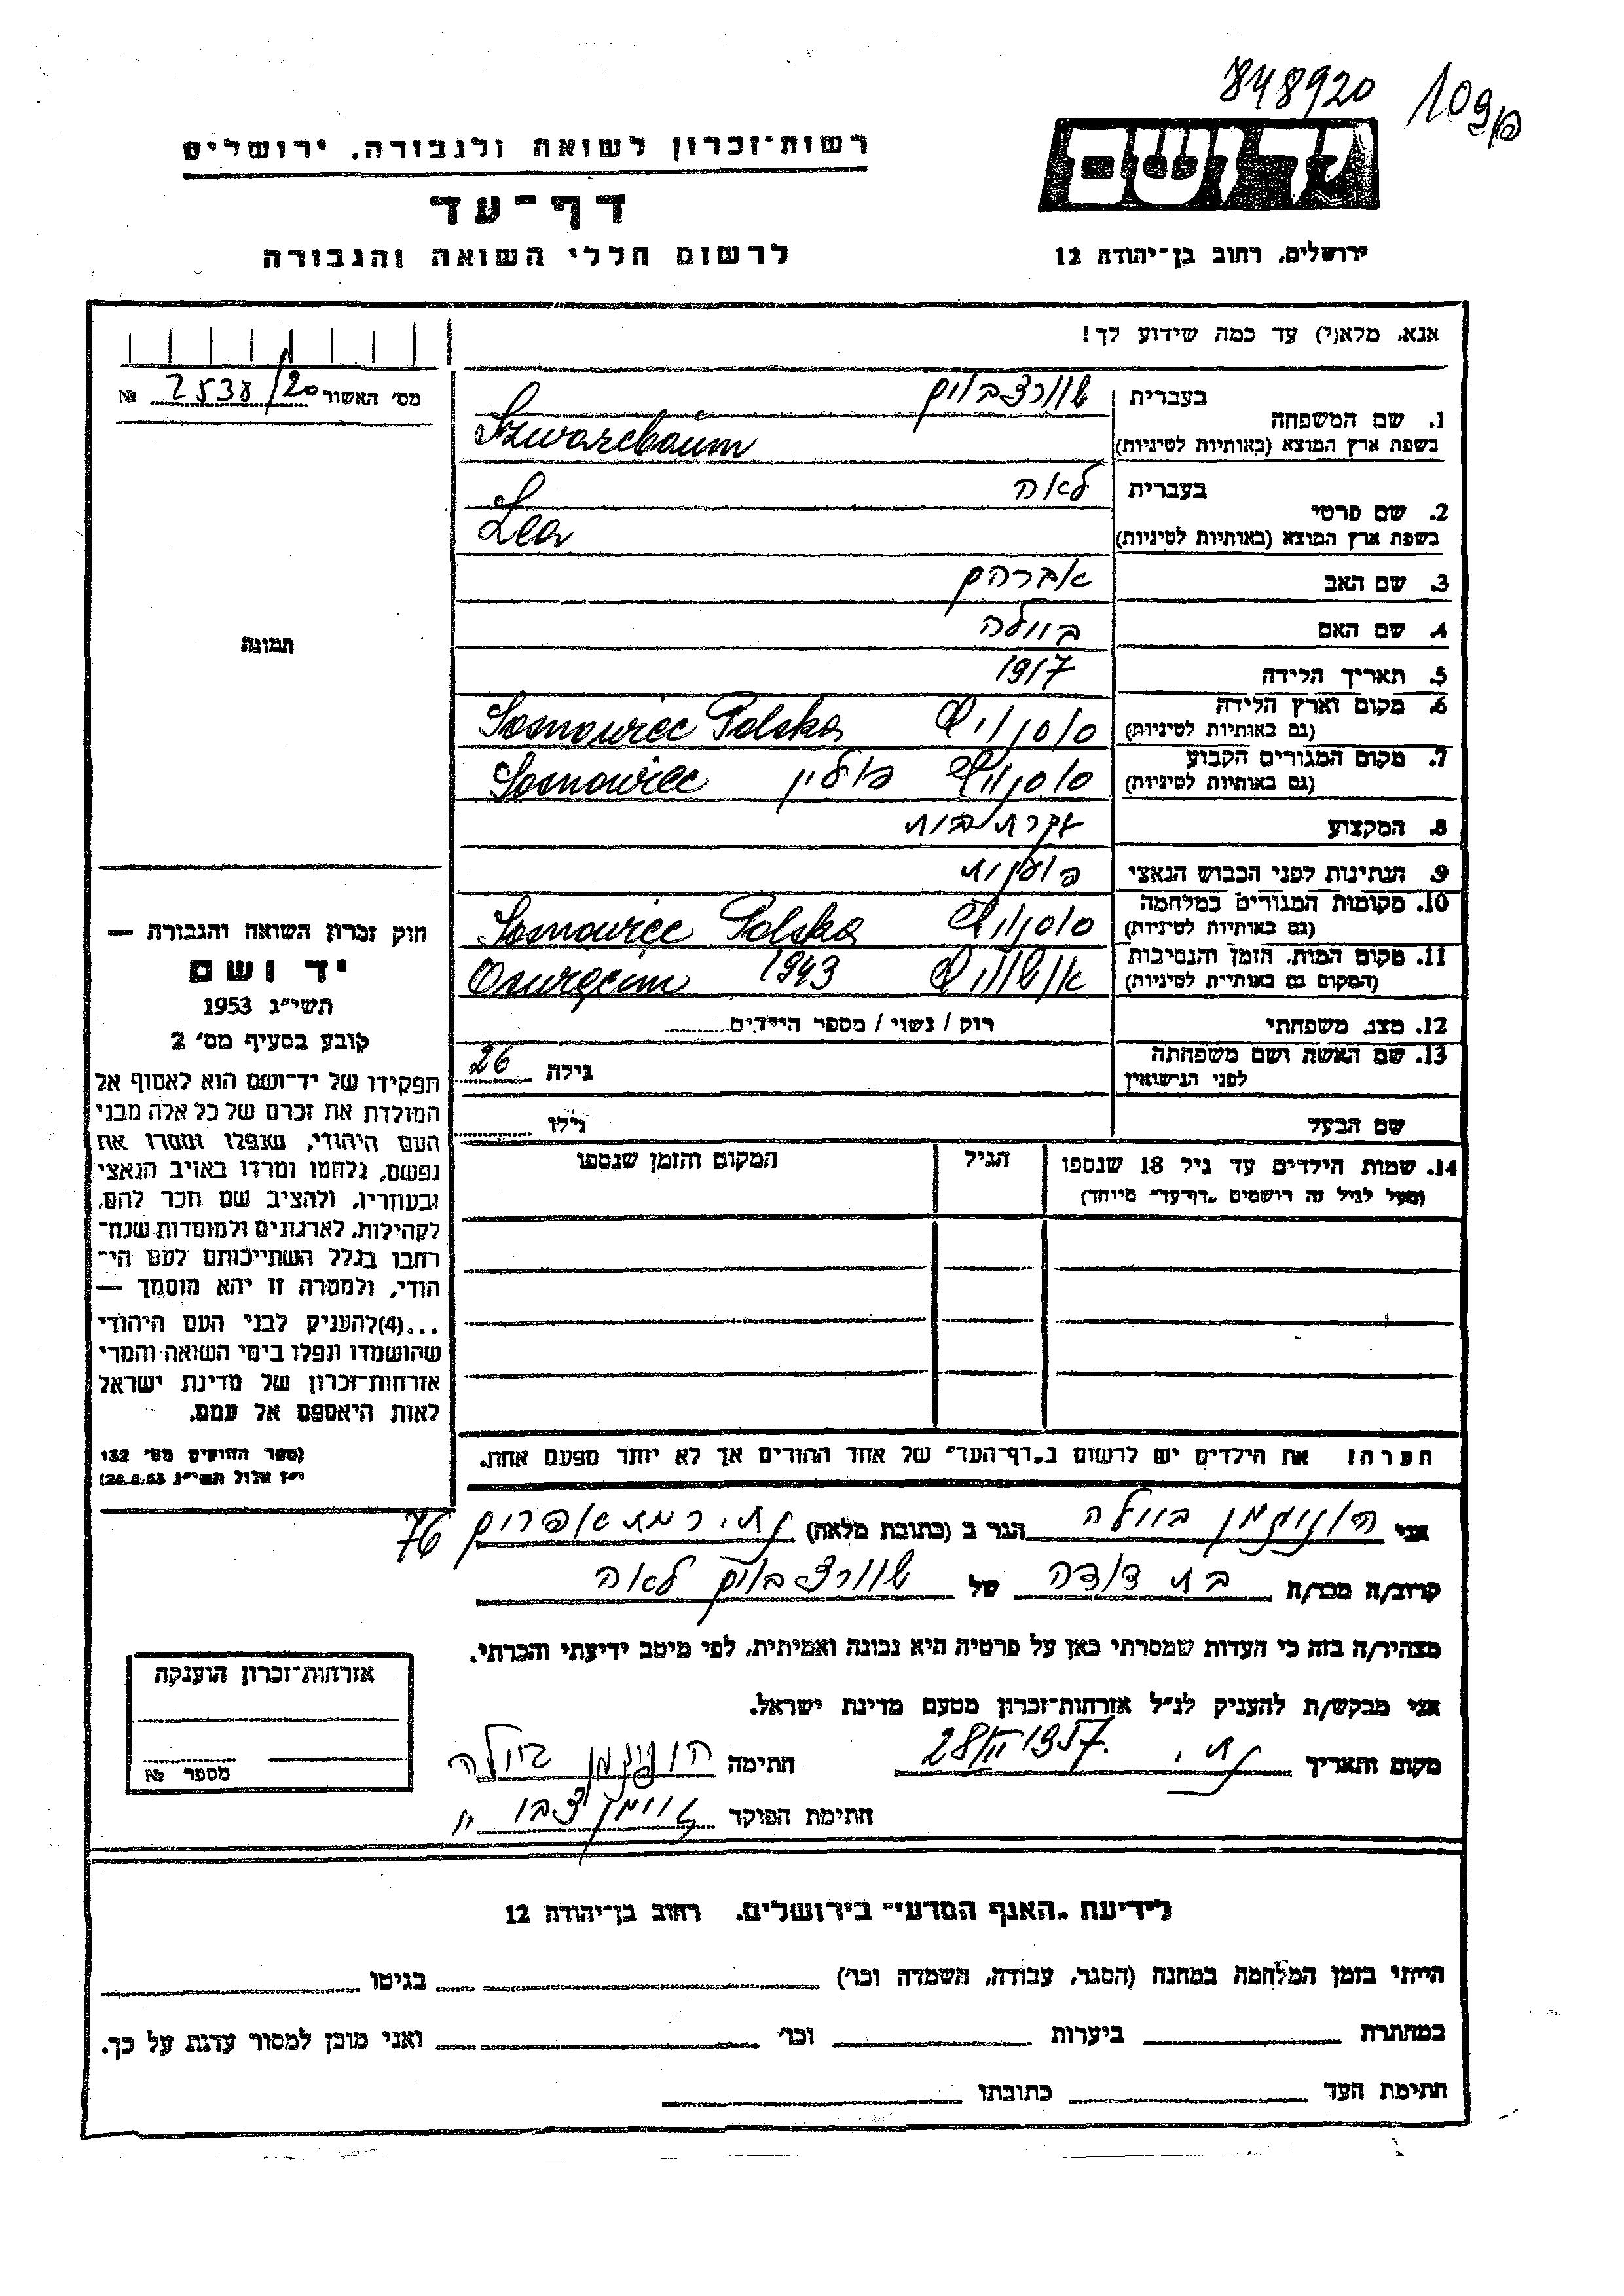 848920
רשות־זכרון לשואה ולגבורה, ירושלים
דף־עד
לרשום חללי השואה והגבורה
יד ושם
ירושלים, רחוב בן־יהודה 12
אנא, מלא(י) עד כמה שידוע לך!
מס' האשור 2538/20 №
תמונה
1. שם המשפחה
בעברית שוורצבוים
בשפת ארץ המוצא (באותיות לטיניות) Szwarcbaum
2. שם פרטי
בעברית לאה
בשפת ארץ המוצא (באותיות לטיניות) Lea
3. שם האב אברהם
4. שם האם ביילה
5. תאריך הלידה 1917
6. מקום וארץ הלידה (גם באותיות לטיניות) סוסנוויץ Sosnowiec Polska
7. מקום המגורים הקבוע (גם באותיות לטיניות) סוסנוויץ פולין Sosnowiec
8. המקצוע עקרת בית
9. הנתינות לפני הכבוש הנאצי פולנית
10. מקומות המגורים במלחמה (גם באותיות לטיניות) סוסנוויץ Sosnowiec Polska
11. מקום המות, הזמן והנסיבות (המקום גם באותיות לטיניות) אושוויץ 1943 Oswięcim
12. מצב משפחתי רוק / נשוי / מספר הילדים
13. שם האשה ושם משפחתה לפני הנישואין גילה 26
שם הבעל גילו
14. שמות הילדים עד גיל 18 שנספו הגיל המקום והזמן שנספו
(מעל לגיל זה רושמים "דף־עד" מיוחד)
חוק זכרון השואה והגבורה —
יד ושם
תשי"ג 1953
קובע בסעיף מס' 2
תפקידו של יד־ושם הוא לאסוף אל
המולדת את זכרם של כל אלה מבני
העם היהודי, שנפלו ומסרו את
נפשם, נלחמו ומרדו באויב הנאצי
ובעוזריו, ולהציב שם וזכר להם,
לקהילות, לארגונים ולמוסדות שנח־
רבו בגלל השתייכותם לעם הי־
הודי, ולמטרה זו יהא מוסמך —
...(4)להעניק לבני העם היהודי
שהושמדו ונפלו בימי השואה והמרי
אזרחות־זכרון של מדינת ישראל
לאות היאספם אל עמם.
(ספר החוקים מס' 132
י"ז אלול תשי"ג 28.8.53)
הערה: את הילדים יש לרשום ב"דף־העד" של אחד ההורים אך לא יותר מפעם אחת.
אני הוניגמן ביילה הגר ב (כתובת מלאה) נת. רמת אפרים 76
קרוב/ה מכר/ה בת דודה של שוורצבוים לאה
מצהיר/ה בזה כי העדות שמסרתי כאן על פרטיה היא נכונה ואמיתית, לפי מיטב ידיעתי והכרתי.
אני מבקש/ת להעניק לנ"ל אזרחות־זכרון מטעם מדינת ישראל.
מקום ותאריך נת. 28/II 1957 חתימה הוניגמן ביילה
חתימת הפוקד
אזרחות־זכרון הוענקה
מספר №
לידיעת "האגף המדעי" בירושלים, רחוב בן־יהודה 12
הייתי בזמן המלחמה במחנה (הסגר, עבודה, השמדה וכו') בגיטו
במחתרת ביערות וכו' ואני מוכן למסור עדות על כך.
חתימת העד כתובתו